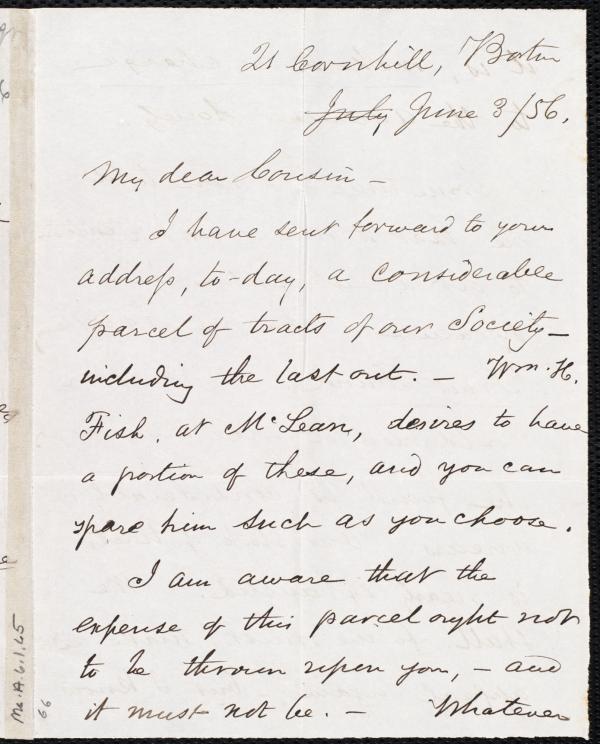 21 Cornhill, Boston
~~July~~ June 3/56.
My dear Cousin —
I have sent forward to your
address, to-day, a considerable
parcel of tracts of our Society —
including the last out. — Wm. H.
Fish, at McLean, desires to have
a portion of these, and you can
spare him such as you choose.
I am aware that the
expense of this parcel ought not
to be thrown upon you, — and
it must not be. — Whatever
Ms. A. 6.1.45
66